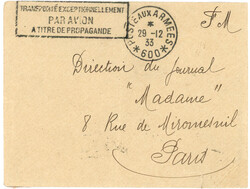 TRANSPORTÉ EXCEPTIONNELLEMENT
PAR AVION
A TITRE DE PROPAGANDE
POSTE AUX ARMÉES
29-12
33
*600*
FM
Direction du Journal
"Madame"
8 Rue de Miromesnil
Paris